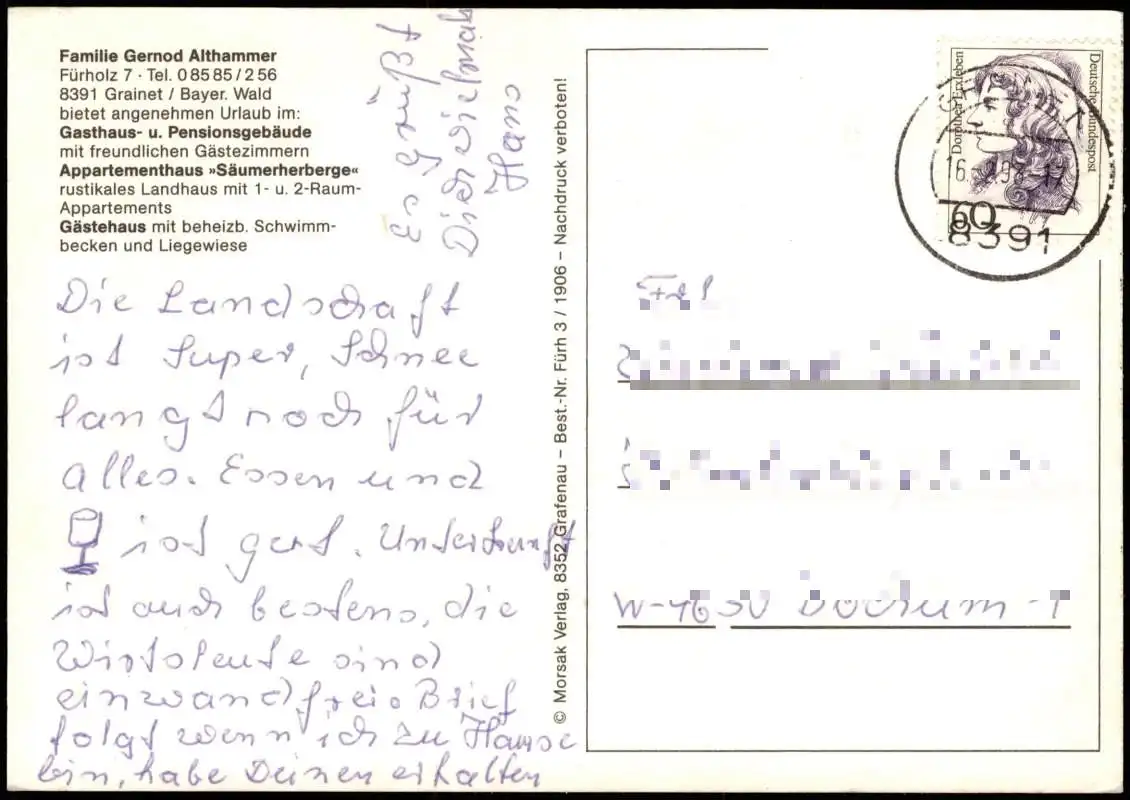 Familie Gernod Althammer
Fürholz 7 · Tel. 08585/256
8391 Grainet / Bayer. Wald
bietet angenehmen Urlaub im:
Gasthaus- u. Pensionsgebäude
mit freundlichen Gästezimmern
Appartementhaus »Säumerherberge«
rustikales Landhaus mit 1- u. 2-Raum-
Appartements
Gästehaus mit beheizb. Schwimm-
becken und Liegewiese
Die Landschaft
ist Super, Schnee
langt noch für
alles. Essen und
ist gut. Unterkunft
ist auch bestens, die
Wirtsleute sind
einwandfrei. Brief
folgt wenn ich zu Hause
bin, habe Deinen erhalten
Es grüßt
Dich vielmals
Hans
© Morsak Verlag, 8352 Grafenau – Best.-Nr. Fürh 3 / 1906 – Nachdruck verboten!
Dorothea Erxleben
Deutsche Bundespost
60
8391
W-4630 Bochum -1